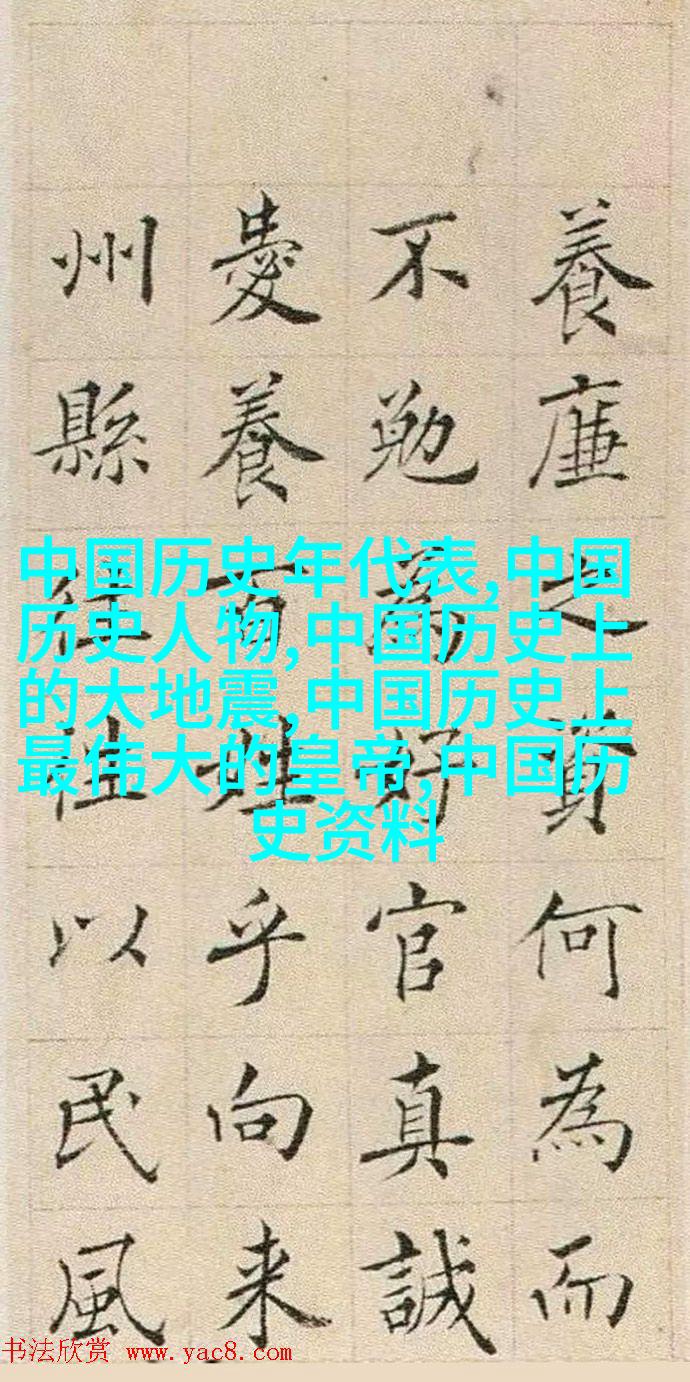 養廉之資何為而
不勉為好官真誠
愛養百姓乎向来
州縣往往以民風
中国历史年代表,中国
历史人物,中国历史上
的大地震,中国历史上
最伟大的皇帝,中国历
史资料
书法欣赏 www.yac8.com